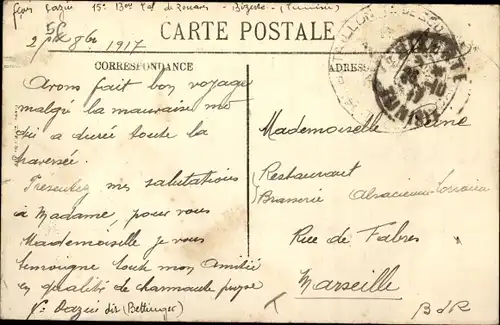 15e Bon Tal de Zouaves - Bizerte - (Tunisie)
CARTE POSTALE
8bre 1917
CORRESPONDANCE
ADRESSE
Avons fait bon voyage
malgré la mauvaise mer
qui a durée toute la
traversée.
Presentez mes salutations
à Madame, pour vous
Mademoiselle je vous
temoigne toute mon Amitié
en qualité de charmante
(Bettinger)
Mademoiselle
Restaurant
Brasserie Alsacienne-Lorraine
Rue de Fabres
Marseille
B d R